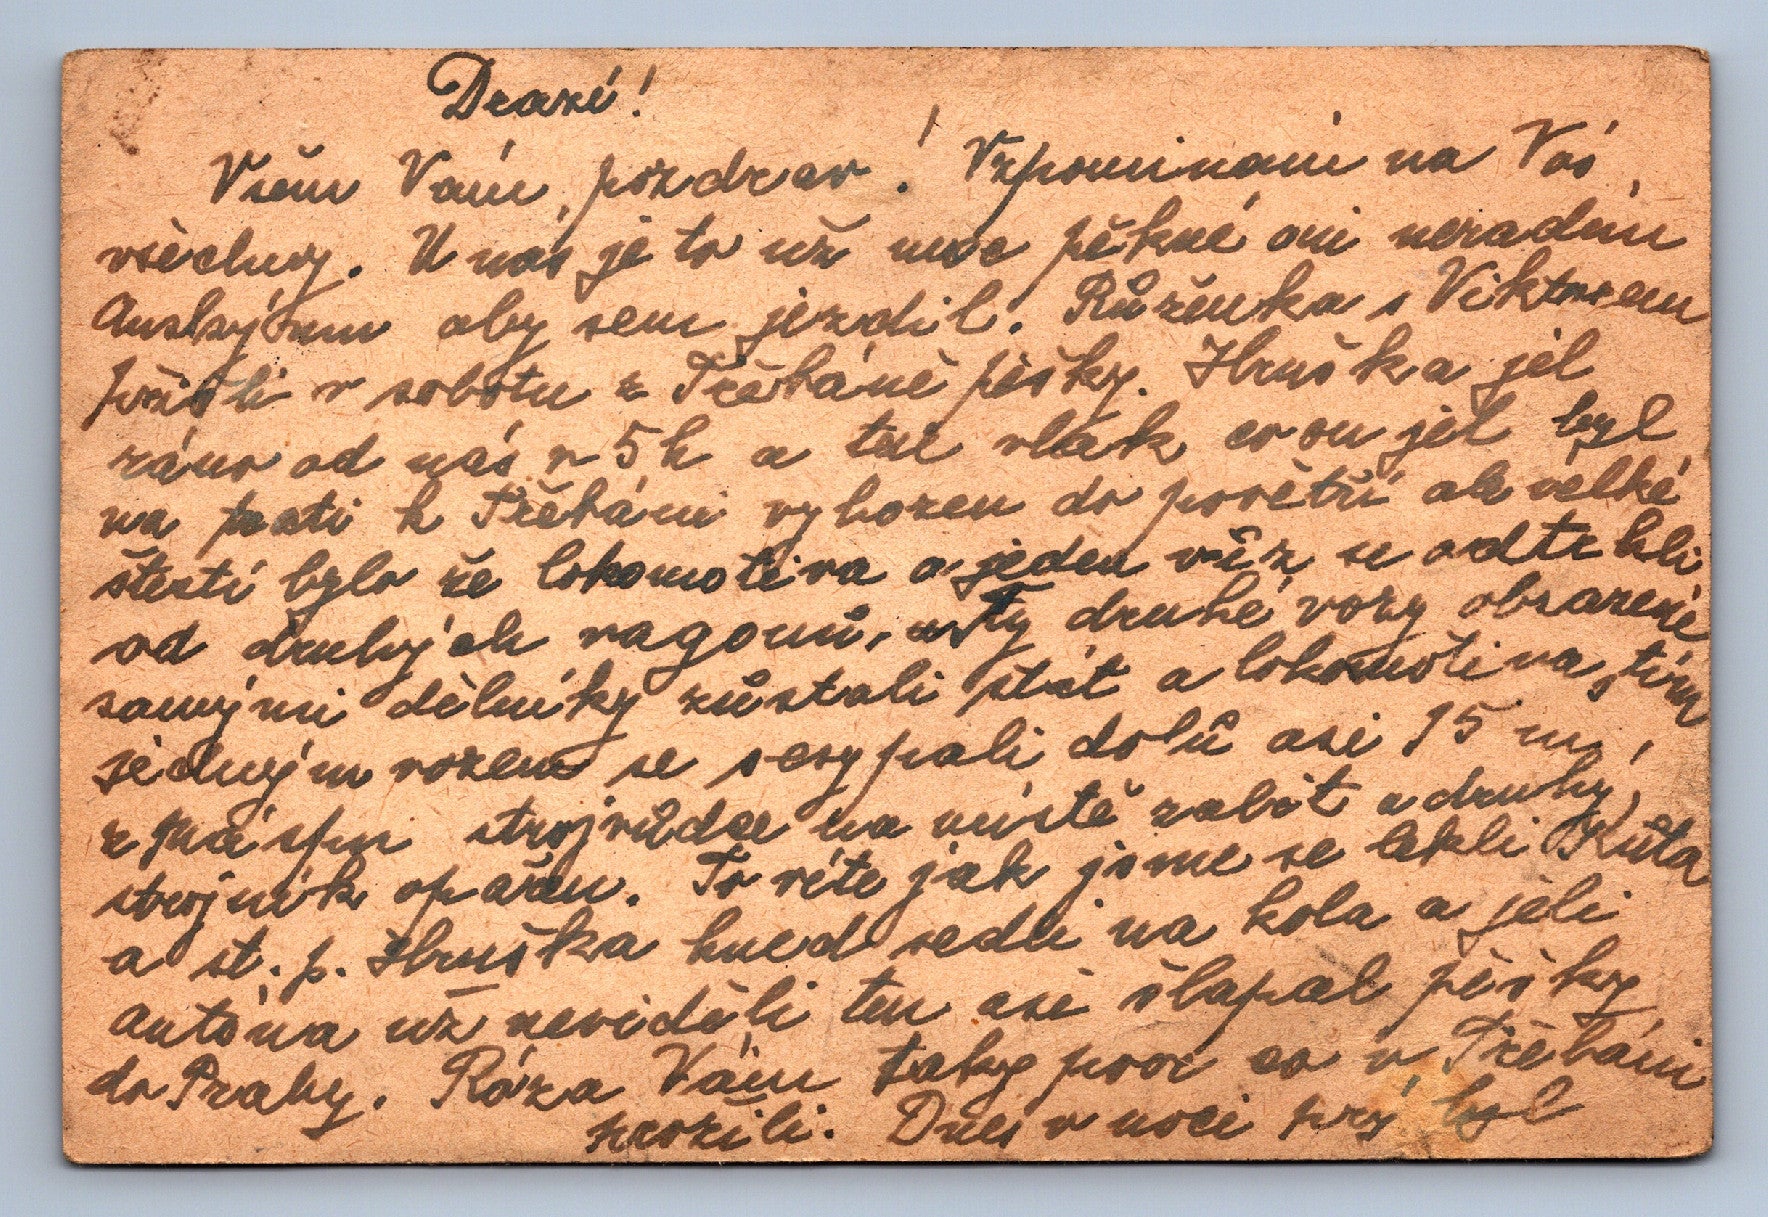 Drazí!
Všem Vám pozdrav! Vzpomínání na Vás
všechny. U nás je to už moc pěkné ani neradím
aby sem jezdil. Růženka s Viktorem
přišli v sobotu z Třebáně pěšky. Hruška jel
ráno od nás v 5h a ten vlak co on jel byl
na trati k Třebáni vyhozen do povětří ale velké
štestí bylo že lokomotiva a jeden vůz se odtrhli
od druhých vagonů, Ty druhé vozy obsazené
samými dělníky zůstali stát a lokomotiva s tím
jediným vozem se sesypali dolů asi 15 m,
strojvůdce na místě zabit a druhý
strojník opařen. To víte jak jsme se lekli Kůta
a st. p. Hruška hned sedli na kola a jeli
Antóna už neviděli ten asi šlapal pěšky
do Prahy. Róza Vám taky poví co v Třebáni
prožili. Dnes v noci prý byl